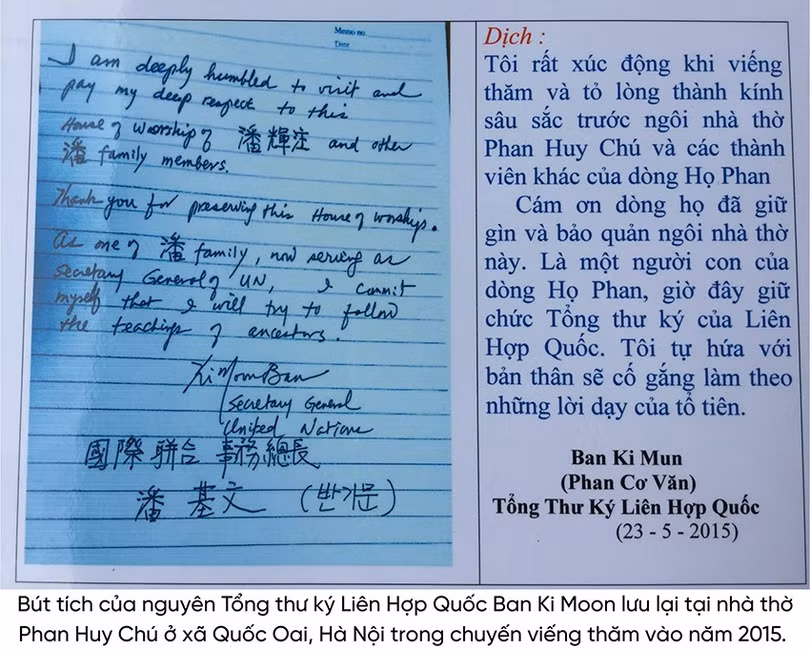 Memo no.
Date
I am deeply humbled to visit and
pay my deep respect to this
House of worship of 潘輝注 and other
潘 family members.
Thank you for preserving this House of worship.
As one of 潘 family, now serving as
Secretary General of UN, I commit
myself that I will try to follow
the teachings of ancestors.
Ki Moon Ban
Secretary General
United Nations
國際聯合 事務總長
潘基文 (반기문)
Dịch :
Tôi rất xúc động khi viếng
thăm và tỏ lòng thành kính
sâu sắc trước ngôi nhà thờ
Phan Huy Chú và các thành
viên khác của dòng Họ Phan
Cám ơn dòng họ đã giữ
gìn và bảo quản ngôi nhà thờ
này. Là một người con của
dòng Họ Phan, giờ đây giữ
chức Tổng thư ký của Liên
Hợp Quốc. Tôi tự hứa với
bản thân sẽ cố gắng làm theo
những lời dạy của tổ tiên.
Ban Ki Mun
(Phan Cơ Văn)
Tổng Thư Ký Liên Hợp Quốc
(23 - 5 - 2015)
Bút tích của nguyên Tổng thư ký Liên Hợp Quốc Ban Ki Moon lưu lại tại nhà thờ
Phan Huy Chú ở xã Quốc Oai, Hà Nội trong chuyến viếng thăm vào năm 2015.